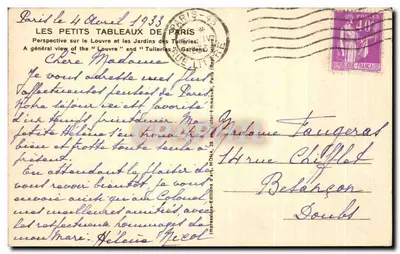 Paris le 4 Avril 1933
LES PETITS TABLEAUX DE PARIS
Perspective sur le Louvre et les Jardins des Tuileries
A general view of the "Louvre" and "Tuileries" Gardens
Chère Madame
Je vous adresse mes plus
affectueuses pensées de Paris.
Notre séjour est favorisé
d'un temps printanier. Ma
petite Hélène s'en trouve
bien et trotte toute la
présent.
En attendant le plaisir de
vous revoir bientôt, je vous
envoie ainsi qu'au Colonel,
mes meilleures amitiés, avec
les respectueux hommages de
mon Mari. Hélène
Madame Faugeras
14 rue Chifflet
Besançon
Doubs
PARIS
40c